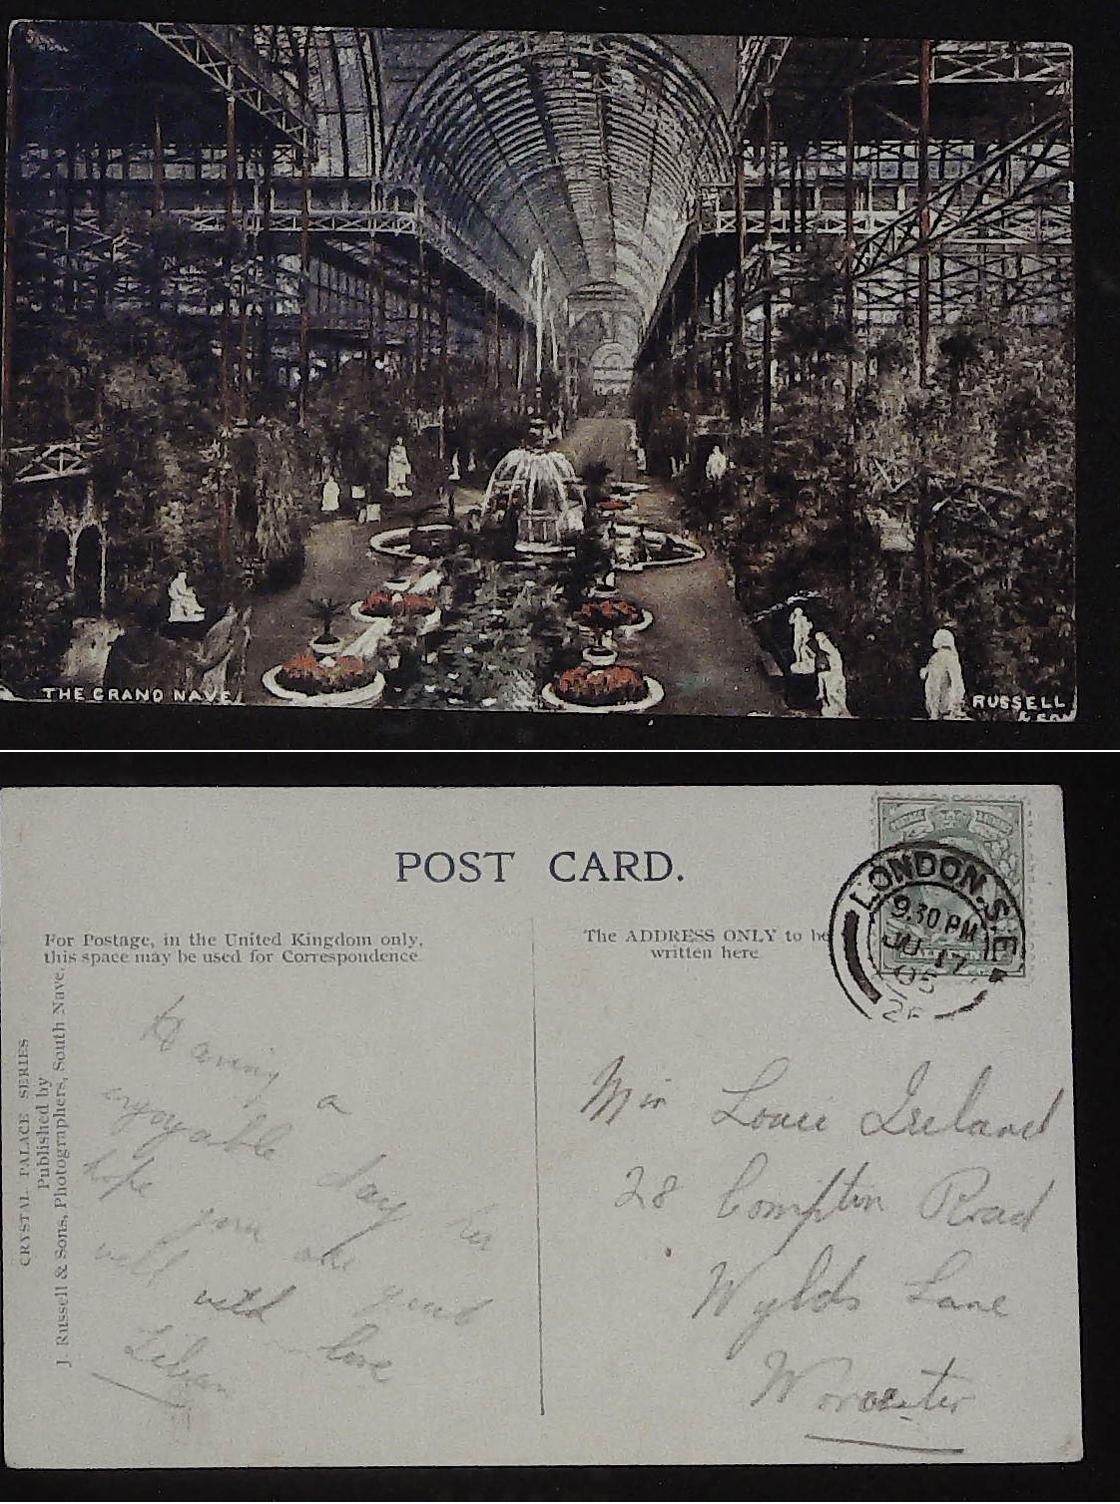 THE GRAND NAVE
RUSSELL
& SON
POST CARD.
For Postage, in the United Kingdom only,
this space may be used for Correspondence.
The ADDRESS ONLY to be
written here
LONDON. S.E.
9.30 PM
17
05
CRYSTAL PALACE SERIES
Published by
J. Russell & Sons, Photographers, South Nave.
Having a
enjoyable day her
hope you are quit
well with love
Lilian
Miss Louie Ireland
28 Compton Road
Wylds Lane
Worcester